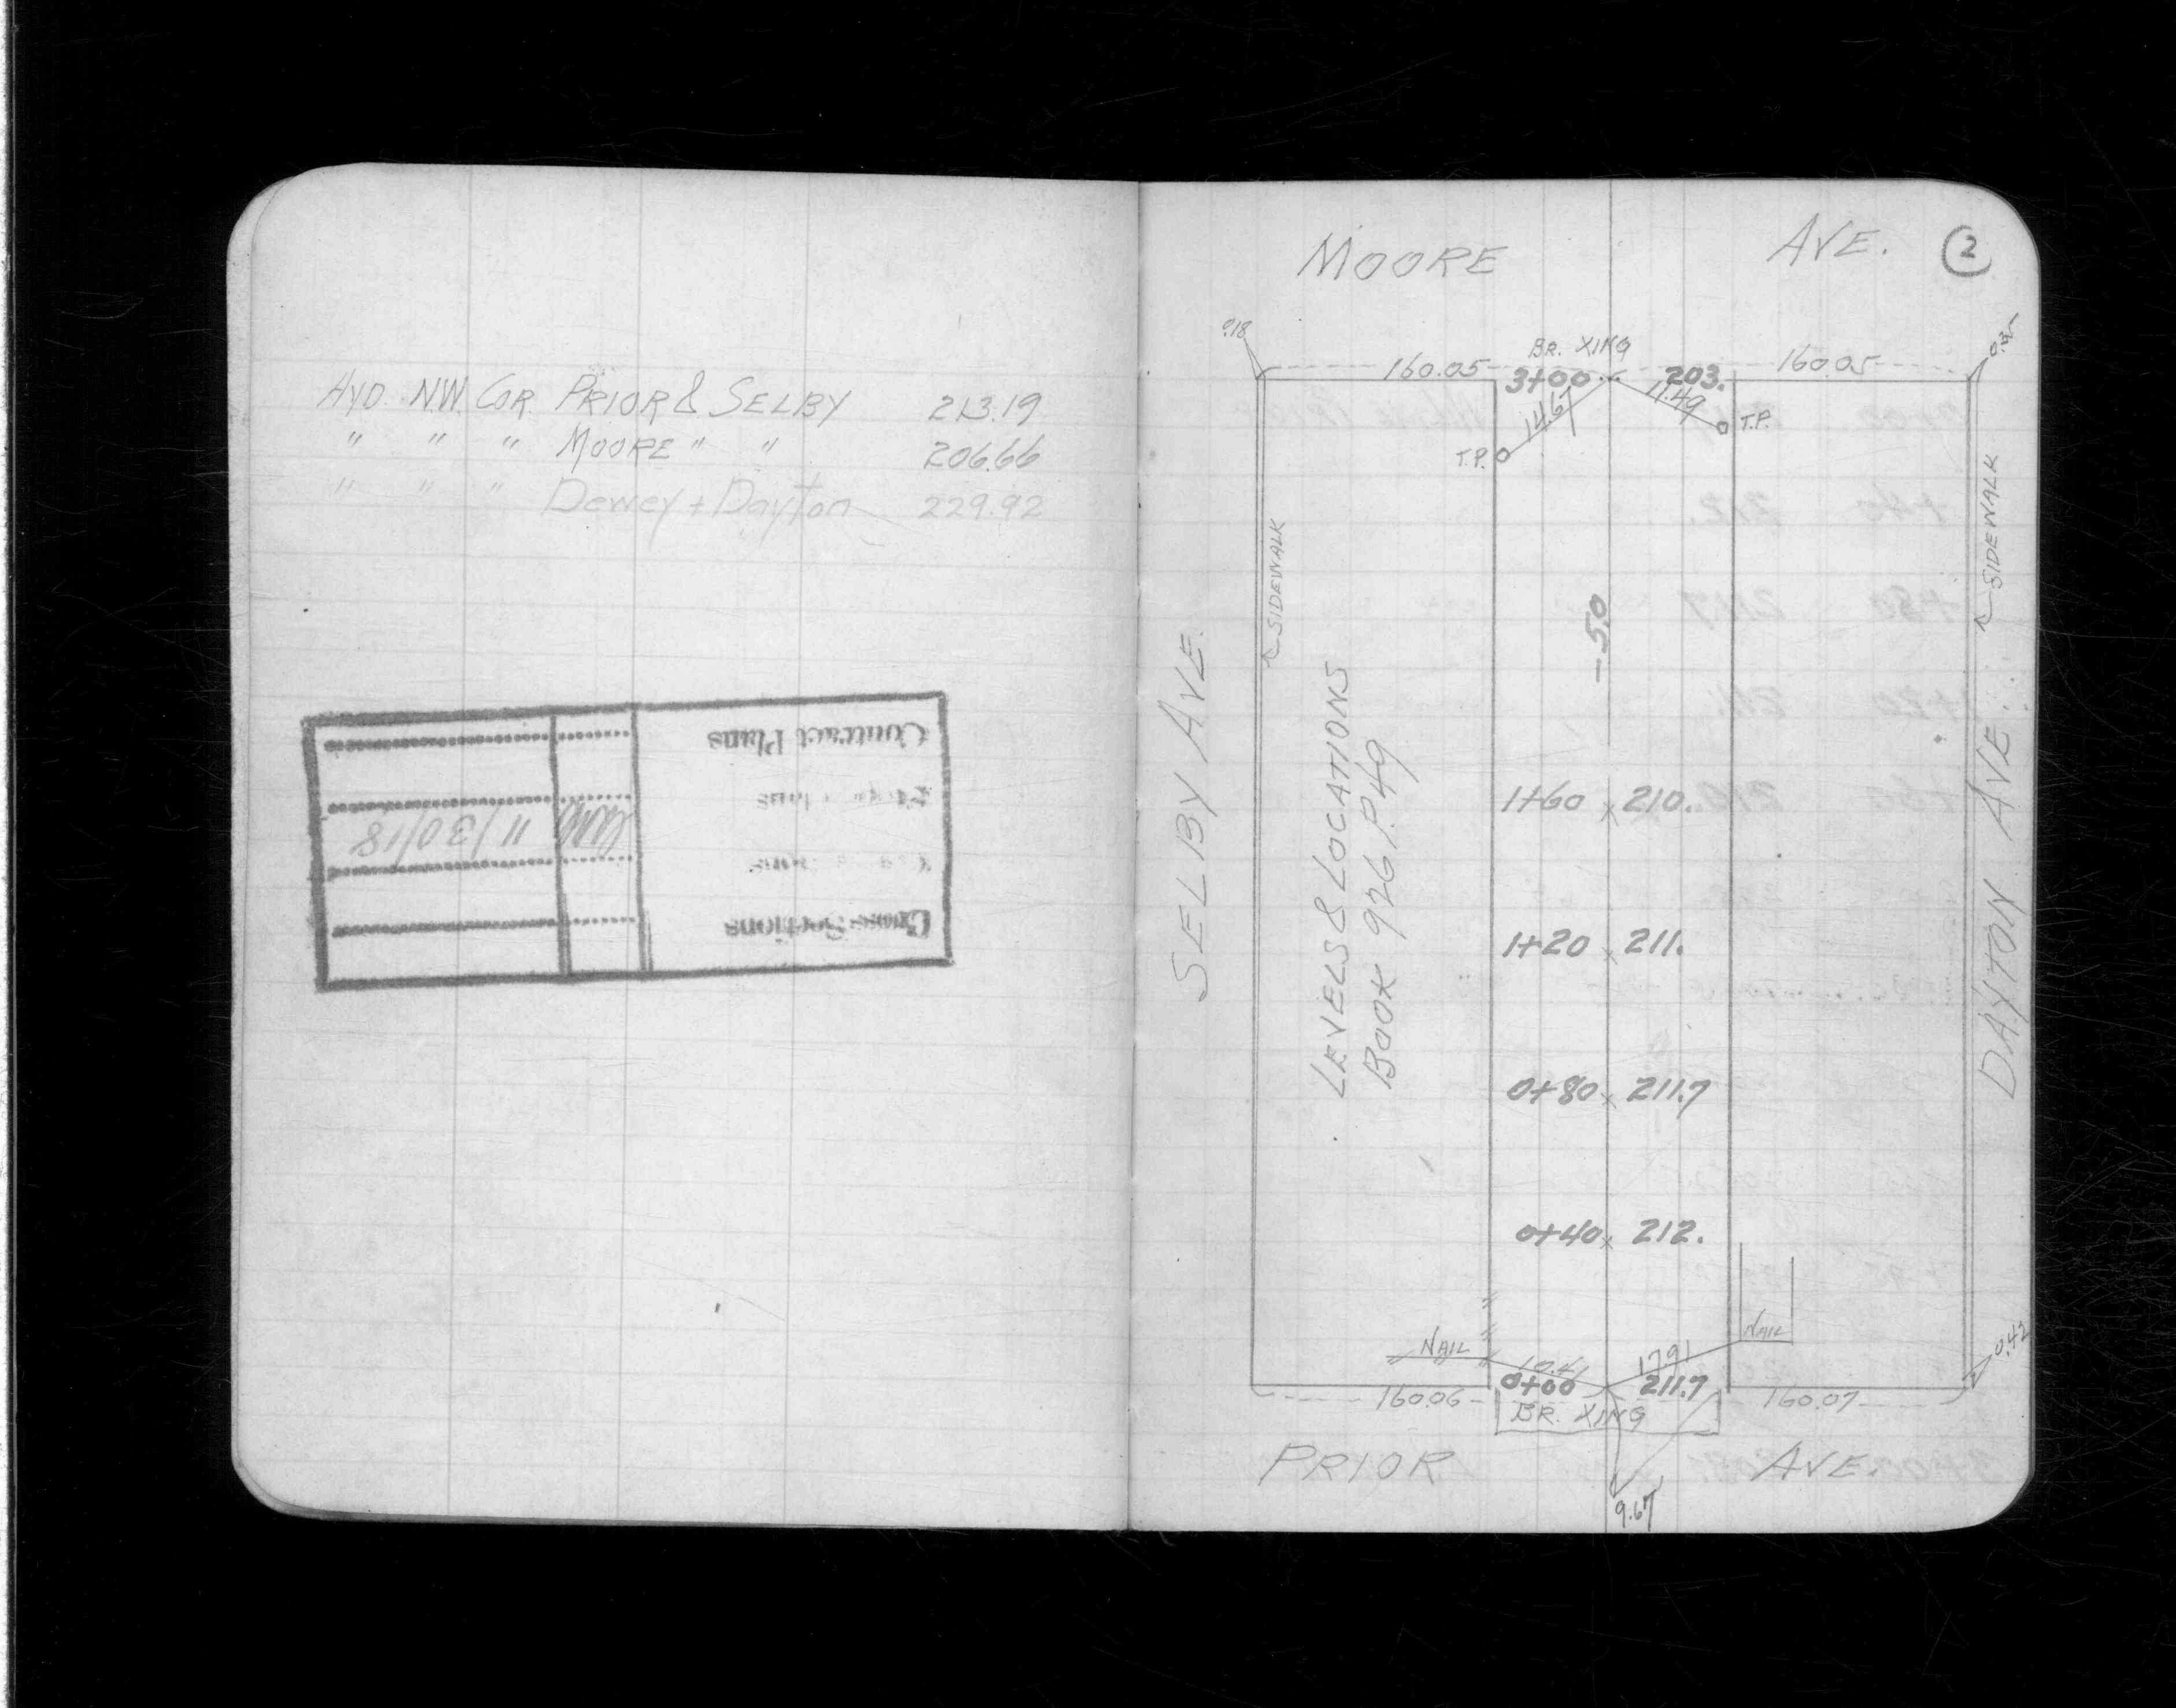 HYD. N.W. COR. PRIOR & SELBY 213.19
" " " MOORE " " 206.66
" " " Dewey + Dayton 229.92
Contract Plans
11/30/18
Cross-Sections
MOORE AVE. 2
0.18
BR. XING
160.05 3+00 203. 160.05
14.67 11.49
T.P. T.P.
SIDEWALK
SIDEWALK
-5.0
SELBY AVE.
LEVELS & LOCATIONS
BOOK 926 P.49
DAYTON AVE.
1+60 x 210.
1+20 x 211.
0+80 x 211.7
0+40 x 212.
NAIL NAIL
10.41 17.91
0.42
0+00 211.7
160.06 BR. XING 160.07
PRIOR AVE.
9.67